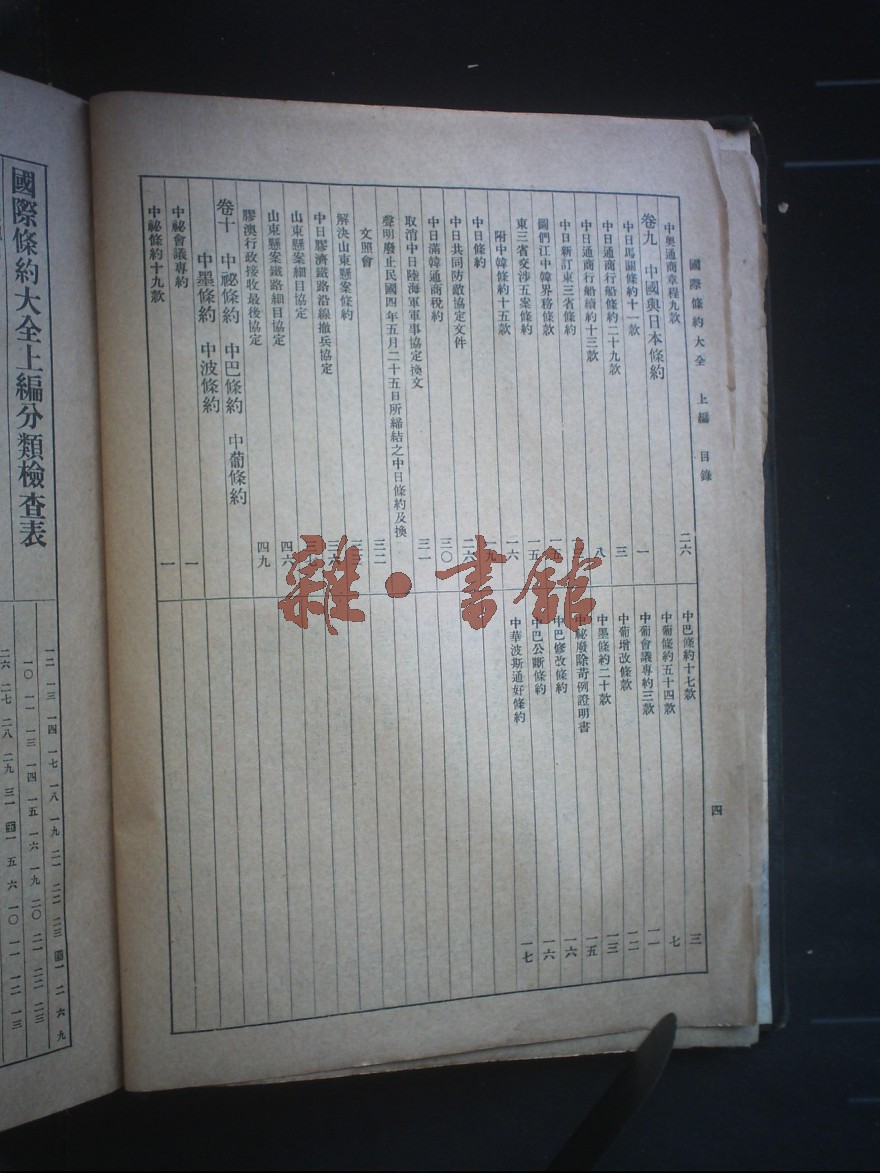 國際條約大全　上編　目錄
四
中奧通商章程九款　二六
卷九　中國與日本條約
中日馬關條約十一款　一
中日通商行船條約二十九款　三
中日通商行船續約十三款　八
中日新訂東三省條約
圖們江中韓界務條款
東三省交涉五案條約　一五
附中韓條約十五款　一六
中日條約　一九
中日共同防敵協定文件　二六
中日滿韓通商稅約　三〇
取消中日陸海軍軍事協定換文　三一
聲明廢止民國四年五月二十五日所締結之中日條約及換
文照會　三二
解決山東懸案條約　三三
中日膠濟鐵路沿線撤兵協定　三六
山東懸案細目協定
山東懸案鐵路細目協定　四六
膠澳行政接收最後協定　四九
卷十　中祕條約　中巴條約　中葡條約
中墨條約　中波條約
中祕會議專約　一
中祕條約十九款　一
中巴條約十七款　三
中葡條約五十四款　七
中葡會議專約三款　一一
中葡增改條款　一二
中墨條約二十款　一三
中祕廢除苛例證明書　一五
中巴修改條約　一六
中巴公斷條約　一六
中華波斯通好條約　一七
雜·書館
國際條約大全上編分類檢查表
一二　一三　一四　一七　一八　一九　二一　二二　二三　一　二　六　九
一〇　一一　一三　一四　一五　一六　一九　二〇　二一　二二　二三
二六　二七　二八　二九　三一　一　五　六　一〇　一一　一二　一三